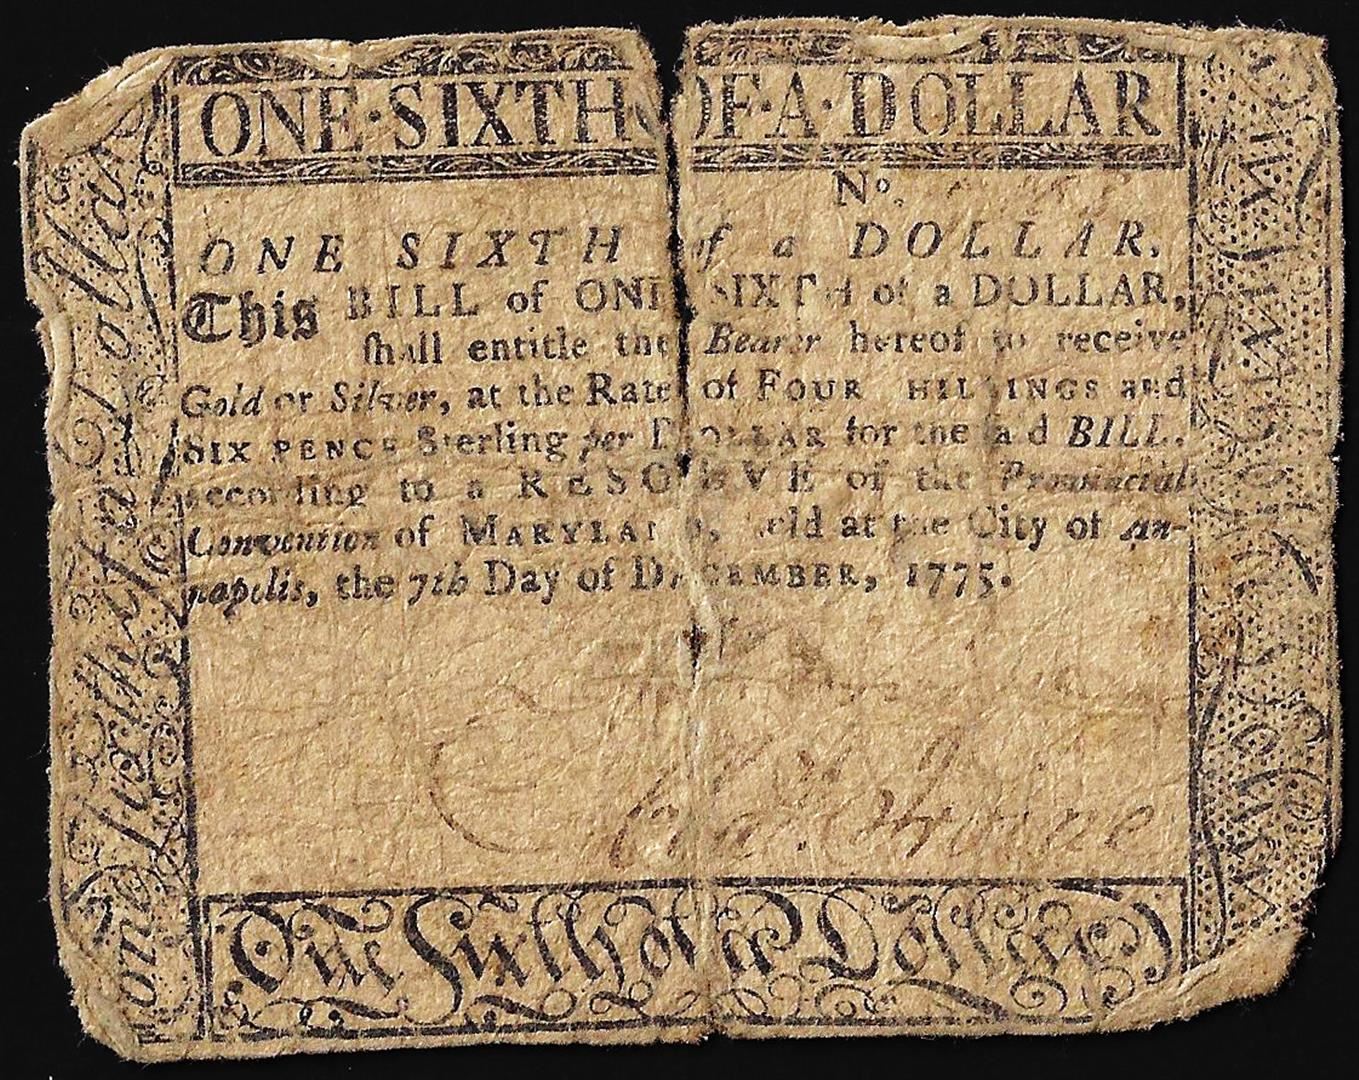 ONE·SIXTH·OF·A·DOLLAR
No.
ONE SIXTH of a DOLLAR.
This BILL of ONE SIXTH of a DOLLAR,
shall entitle the Bearer hereof to receive
Gold or Silver, at the Rate of FOUR SHILLINGS and
SIX PENCE Sterling per DOLLAR for the said BILL,
according to a RESOLVE of the Provincial
Convention of MARYLAND, held at the City of An-
napolis, the 7th Day of DECEMBER, 1775.
One Sixth of a Dollar
One Sixth of a Dollar